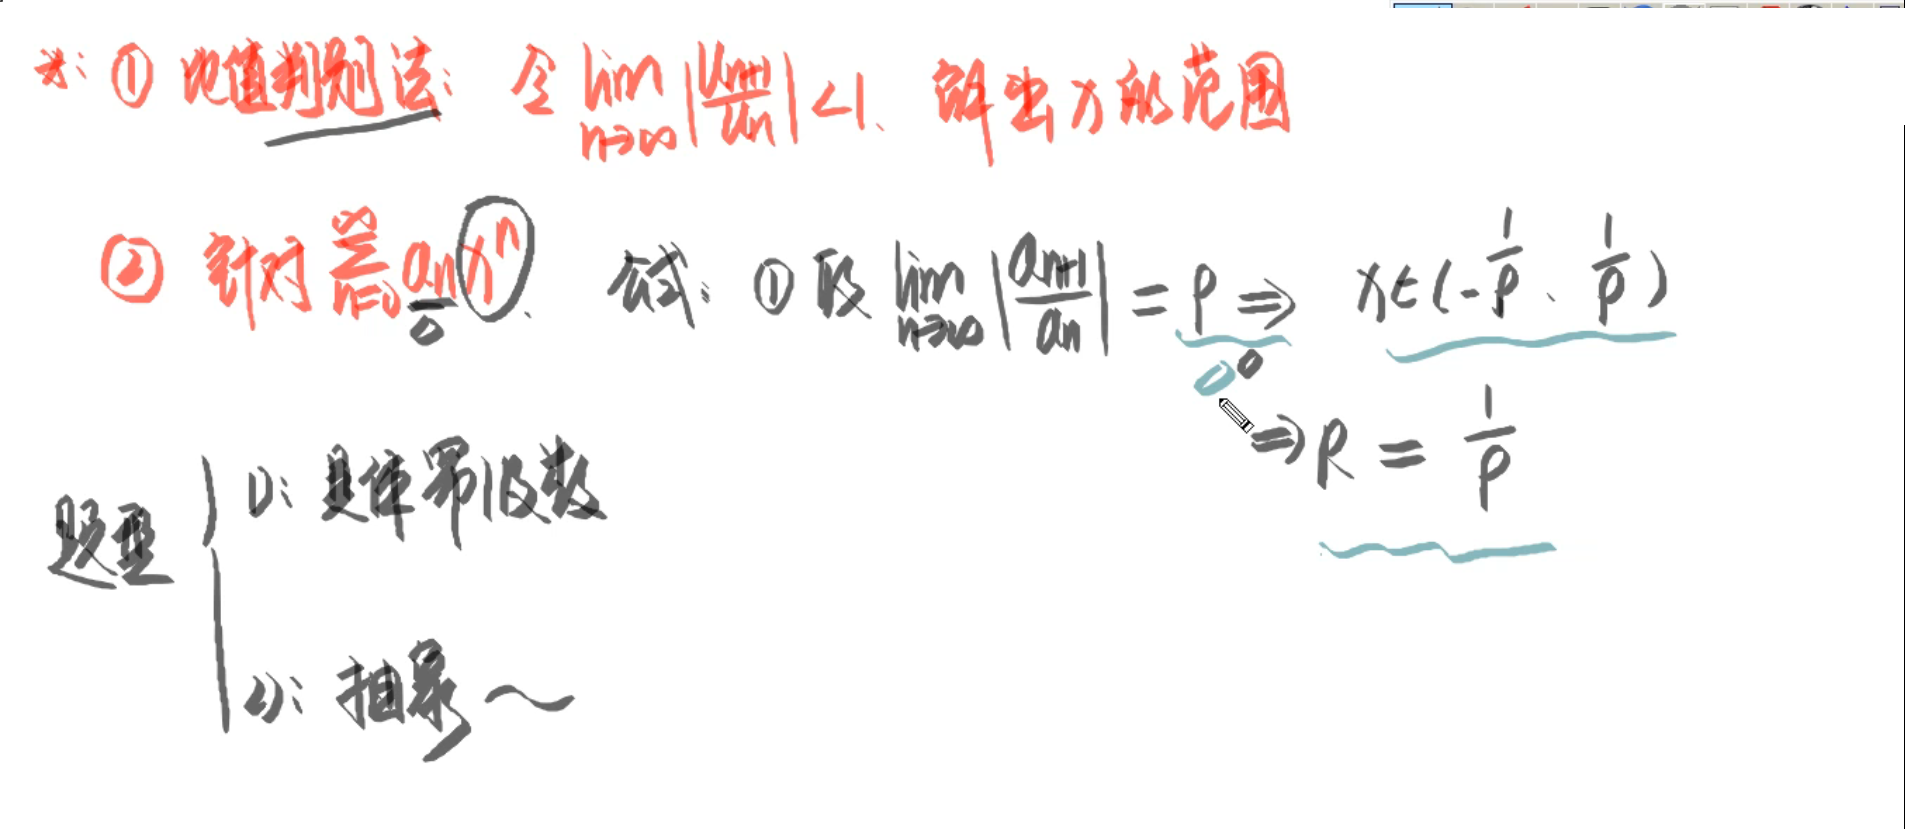 求: ① 比值判别法: 令 lim n→∞ |Un+1/Un| <1、解出 x 的范围
② 针对 ∞ Σ n=0 an xⁿ. 公式: ① 取 lim n→∞ |an+1/an| = ρ ⇒ x∈(-1/ρ、1/ρ)
0 0
⇒ R = 1/ρ
题型 { 1): 具体幂级数
2): 抽象～